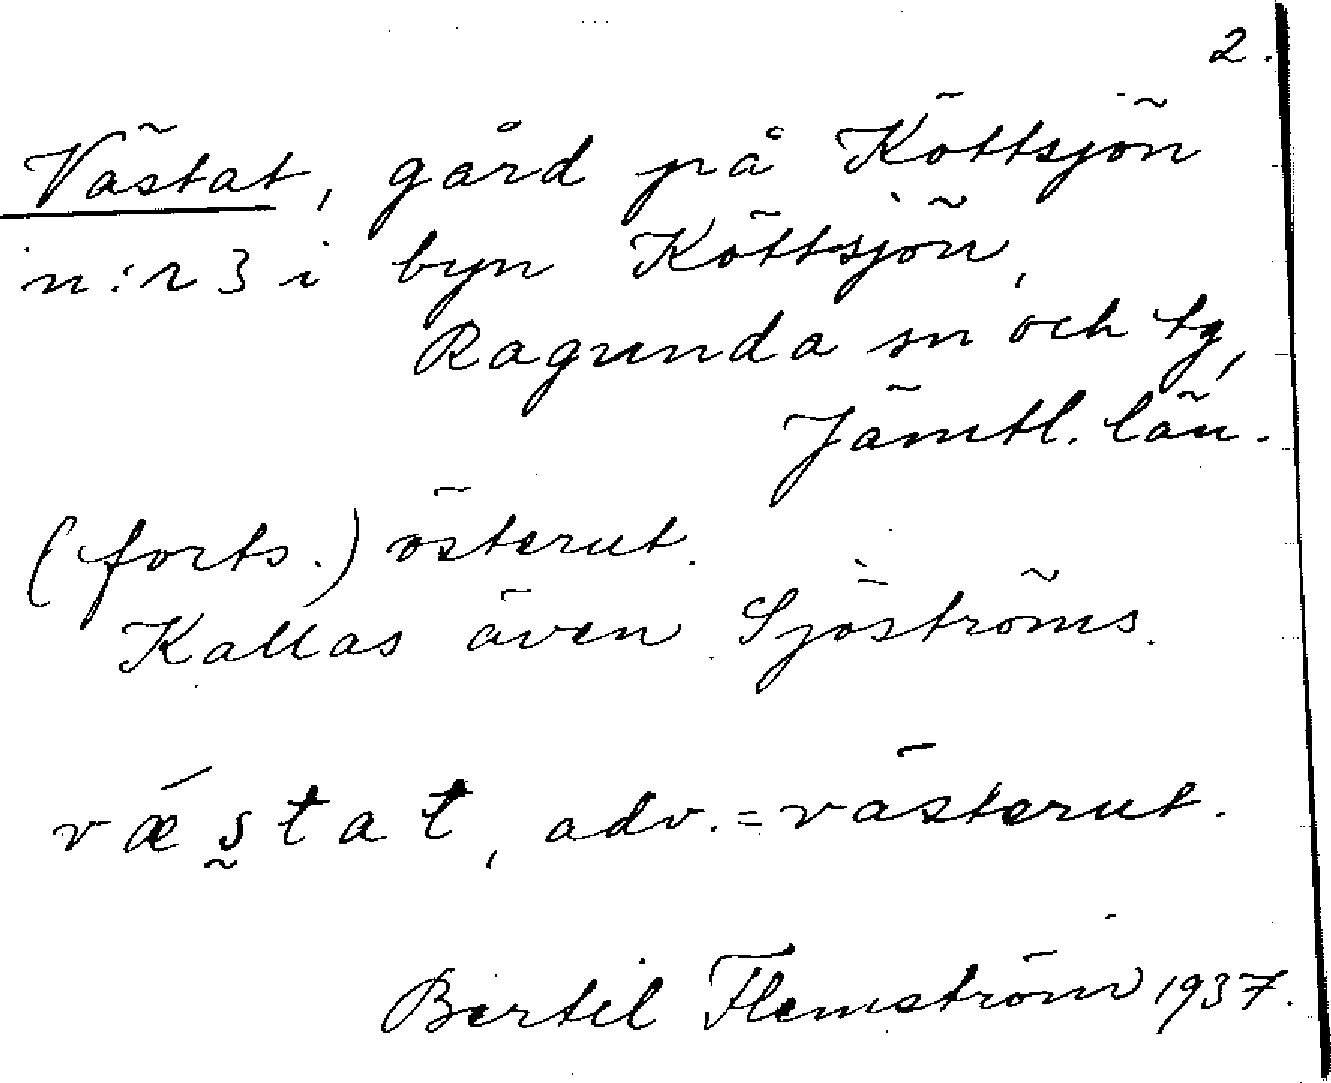 2.
Västat, gård på Köttsjön
n:r 3 i byn Köttsjön,
Ragunda sn och tg,
Jämtl. län.
(forts.) österut.
Kallas även Sjöströms.
væ´s̰tat, adv. = västerut.
Bertil Flemström 1937.